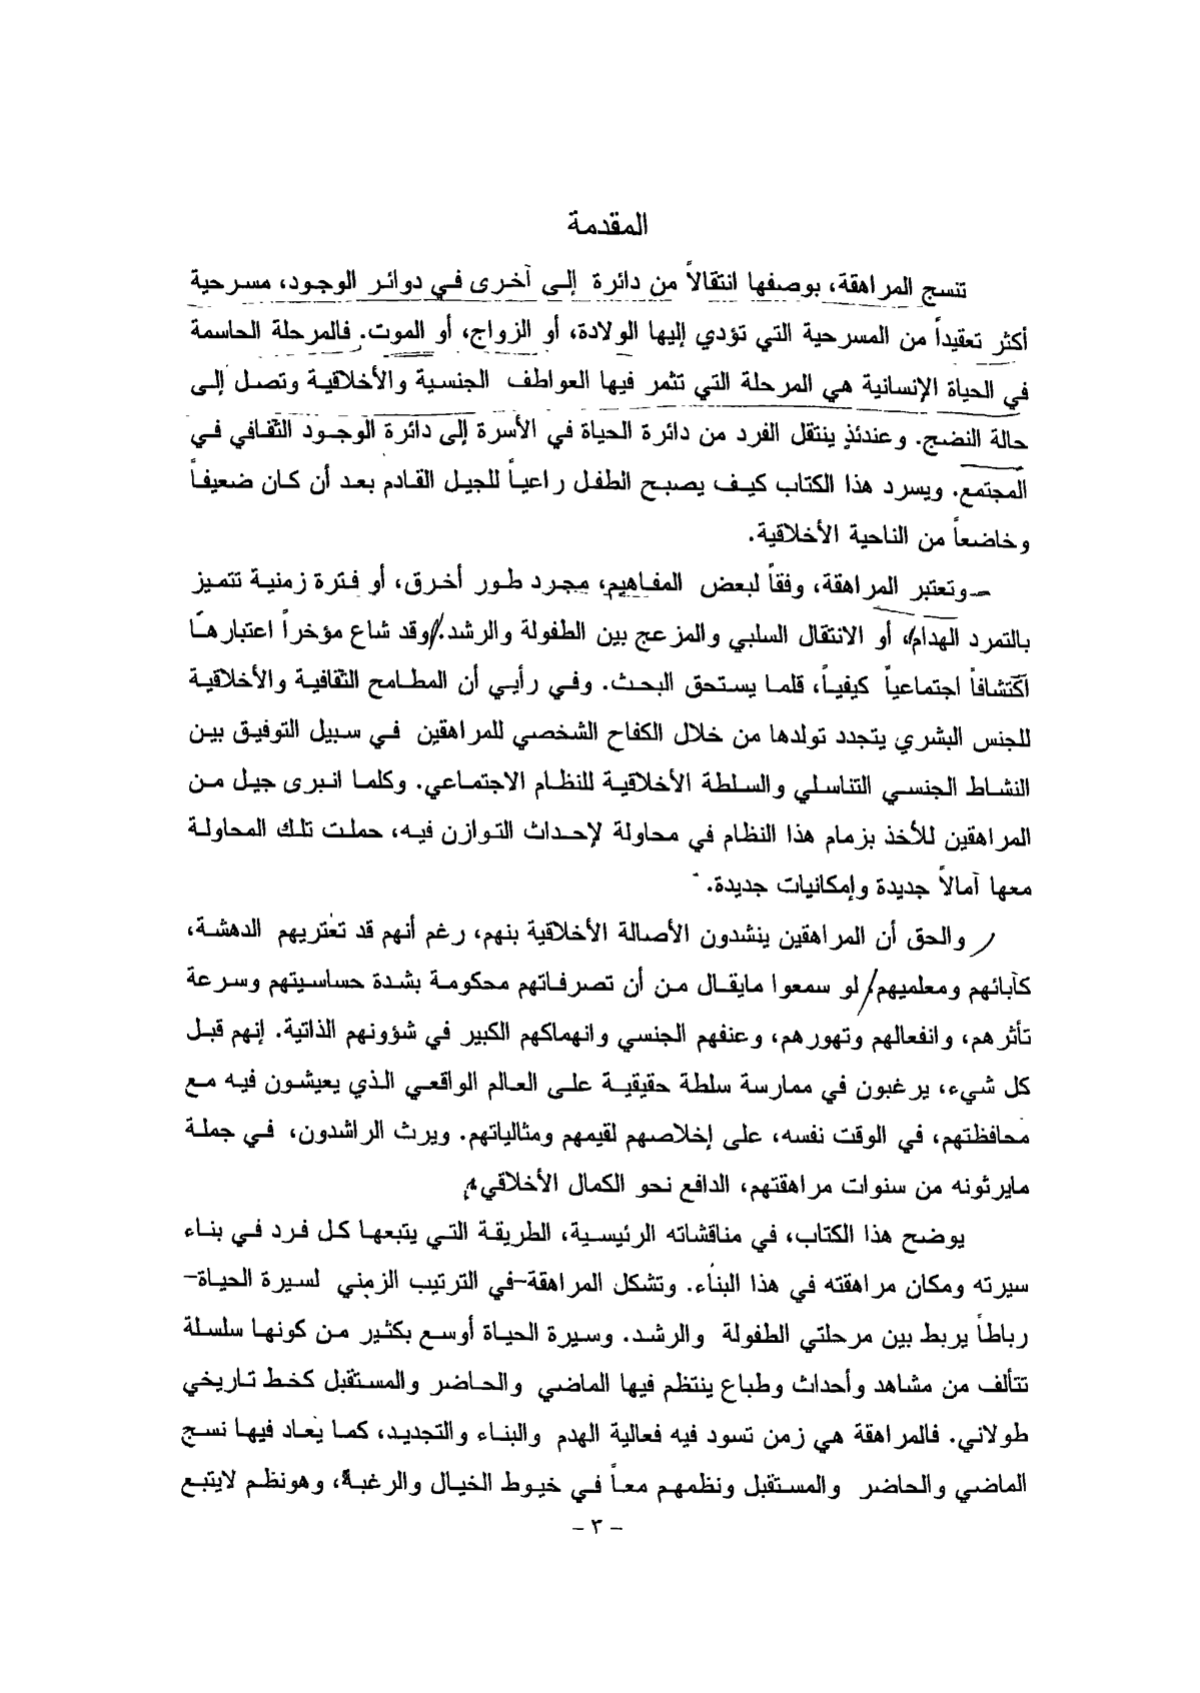 المقدمة
تنسج المراهقة، بوصفها انتقالاً من دائرة إلى آخرى في دوائر الوجود، مسرحية
أكثر تعقيداً من المسرحية التي تؤدي إليها الولادة، أو الزواج، أو الموت. فالمرحلة الحاسمة
في الحياة الإنسانية هي المرحلة التي تثمر فيها العواطف الجنسية والأخلاقية وتصل إلى
حالة النضج. وعندئذٍ ينتقل الفرد من دائرة الحياة في الأسرة إلى دائرة الوجود الثقافي في
المجتمع. ويسرد هذا الكتاب كيف يصبح الطفل راعياً للجيل القادم بعد أن كان ضعيفاً
وخاضعاً من الناحية الأخلاقية.
وتعتبر المراهقة، وفقاً لبعض المفاهيم، مجرد طور أخرق، أو فترة زمنية تتميز
بالتمرد الهدام، أو الانتقال السلبي والمزعج بين الطفولة والرشد. وقد شاع مؤخراً اعتبارها
اكتشافاً اجتماعياً كيفياً، قلما يستحق البحث. وفي رأيي أن المطامح الثقافية والأخلاقية
للجنس البشري يتجدد تولدها من خلال الكفاح الشخصي للمراهقين في سبيل التوفيق بين
النشاط الجنسي التناسلي والسلطة الأخلاقية للنظام الاجتماعي. وكلما انبرى جيل من
المراهقين للأخذ بزمام هذا النظام في محاولة لإحداث التوازن فيه، حملت تلك المحاولة
معها آمالاً جديدة وإمكانيات جديدة.
والحق أن المراهقين ينشدون الأصالة الأخلاقية بنهم، رغم أنهم قد تعتريهم الدهشة،
كآبائهم ومعلميهم، لو سمعوا مايقال من أن تصرفاتهم محكومة بشدة حساسيتهم وسرعة
تأثرهم، وانفعالهم وتهورهم، وعنفهم الجنسي وانهماكهم الكبير في شؤونهم الذاتية. إنهم قبل
كل شيء، يرغبون في ممارسة سلطة حقيقية على العالم الواقعي الذي يعيشون فيه مع
محافظتهم، في الوقت نفسه، على إخلاصهم لقيمهم ومثالياتهم. ويرث الراشدون، في جملة
مايرثونه من سنوات مراهقتهم، الدافع نحو الكمال الأخلاقي.
يوضح هذا الكتاب، في مناقشاته الرئيسية، الطريقة التي يتبعها كل فرد في بناء
سيرته ومكان مراهقته في هذا البناء. وتشكل المراهقة-في الترتيب الزمني لسيرة الحياة-
رباطاً يربط بين مرحلتي الطفولة والرشد. وسيرة الحياة أوسع بكثير من كونها سلسلة
تتألف من مشاهد وأحداث وطباع ينتظم فيها الماضي والحاضر والمستقبل كخط تاريخي
طولاني. فالمراهقة هي زمن تسود فيه فعالية الهدم والبناء والتجديد، كما يعاد فيها نسج
الماضي والحاضر والمستقبل ونظمهم معاً في خيوط الخيال والرغبة، وهونظم لايتبع
- ٣ -